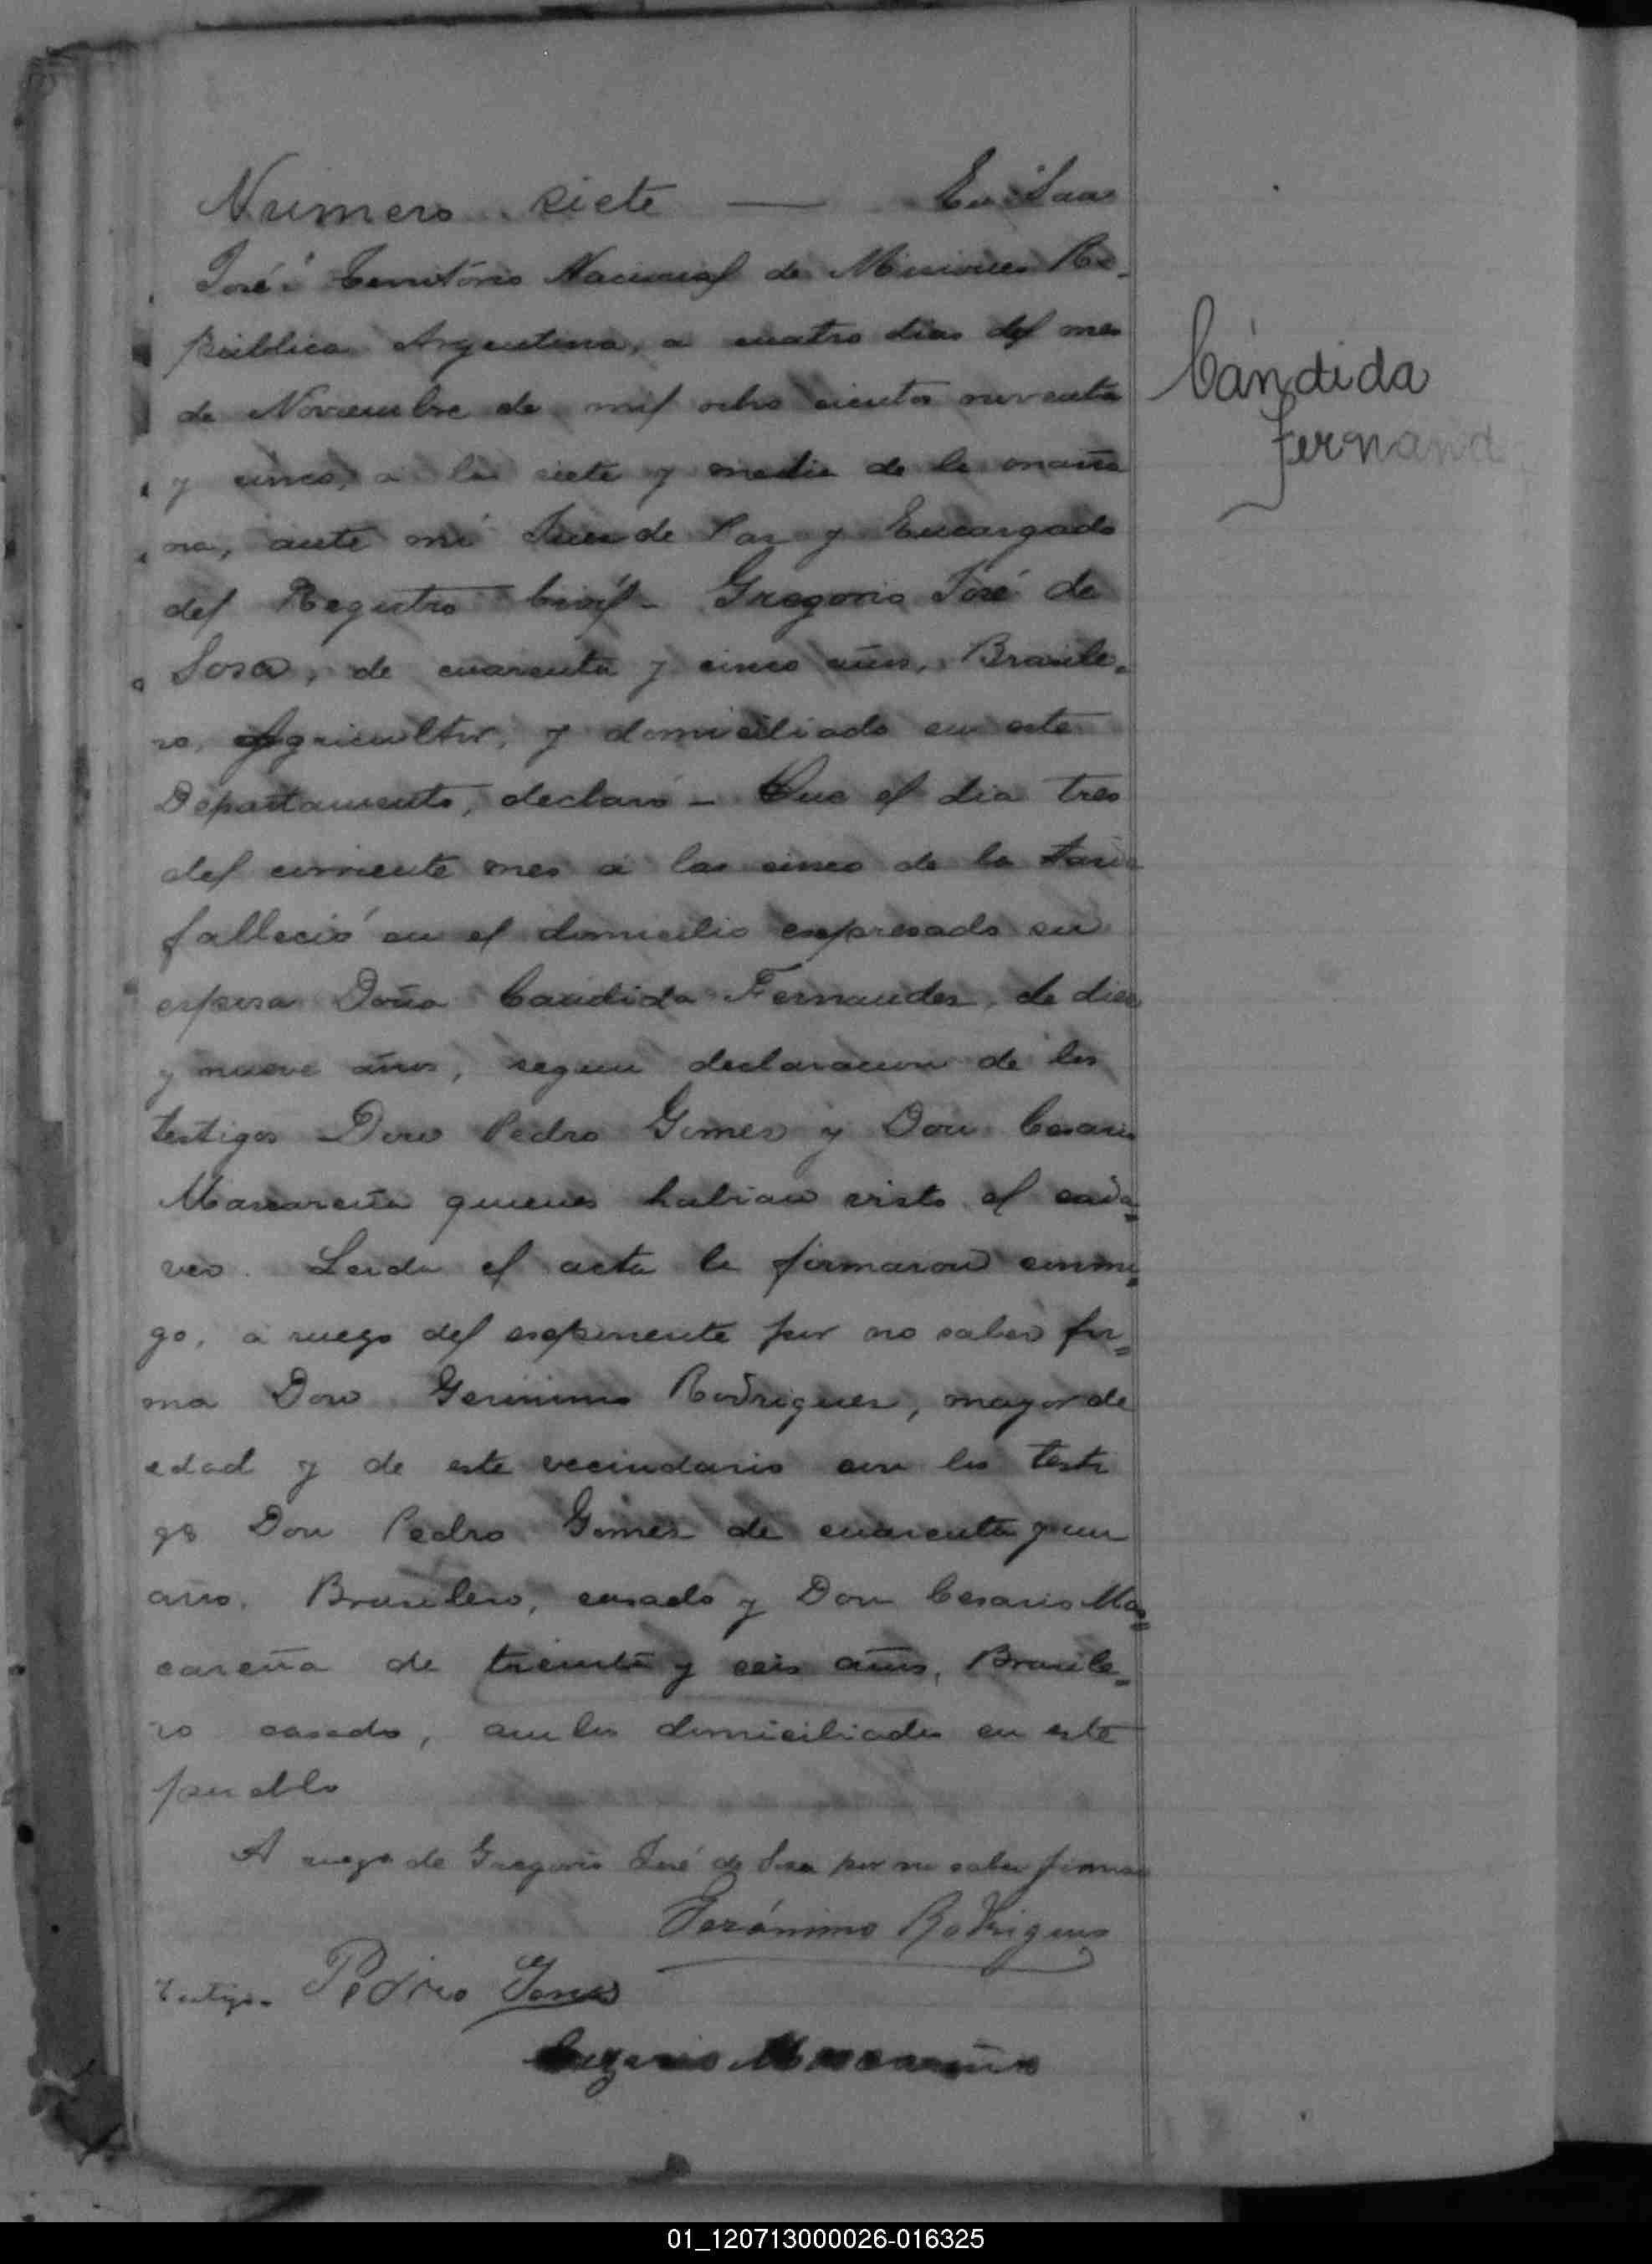 Numero siete — En San
José Territorio Nacional de Misiones Re-
pública Argentina, a cuatro dias del mes
de Noviembre de mil ocho cientos noventa
y cinco, a las siete y media de la maña
na, ante mi Juez de Paz y Encargado
del Registro Civil - Gregorio José de
Sosa, de cuarenta y cinco años, Brasile-
ro, Agricultor, y domiciliado en este
Departamento, declaró - Que el dia tres
del corriente mes a las cinco de la tarde
falleció en el domicilio expresado su
esposa Doña Candida Fernandez, de diez
y nueve años, segun declaracion de los
testigos Don Pedro Gomes y Don Cesario
Mascareña quienes habian visto el cadá=
ver. Leida el acta la firmaron conmi=
go, a ruego del esponente por no saber fir=
ma Don Geronimo Rodriguez, mayor de
edad y de este vecindario con los testi
gos Don Pedro Gomes de cuarenta y un
años. Brasilero, casado y Don Cesario Mas=
careña de treinta y seis años, Brasile=
ro casado, ambos domiciliados en este
pueblo
A ruego de Gregorio José de Sosa por no saber firmar
Jerónimo Rodrigues
Testigo. Pedro Gomes
Mascareña
Cándida
Fernand
01_120713000026-016325